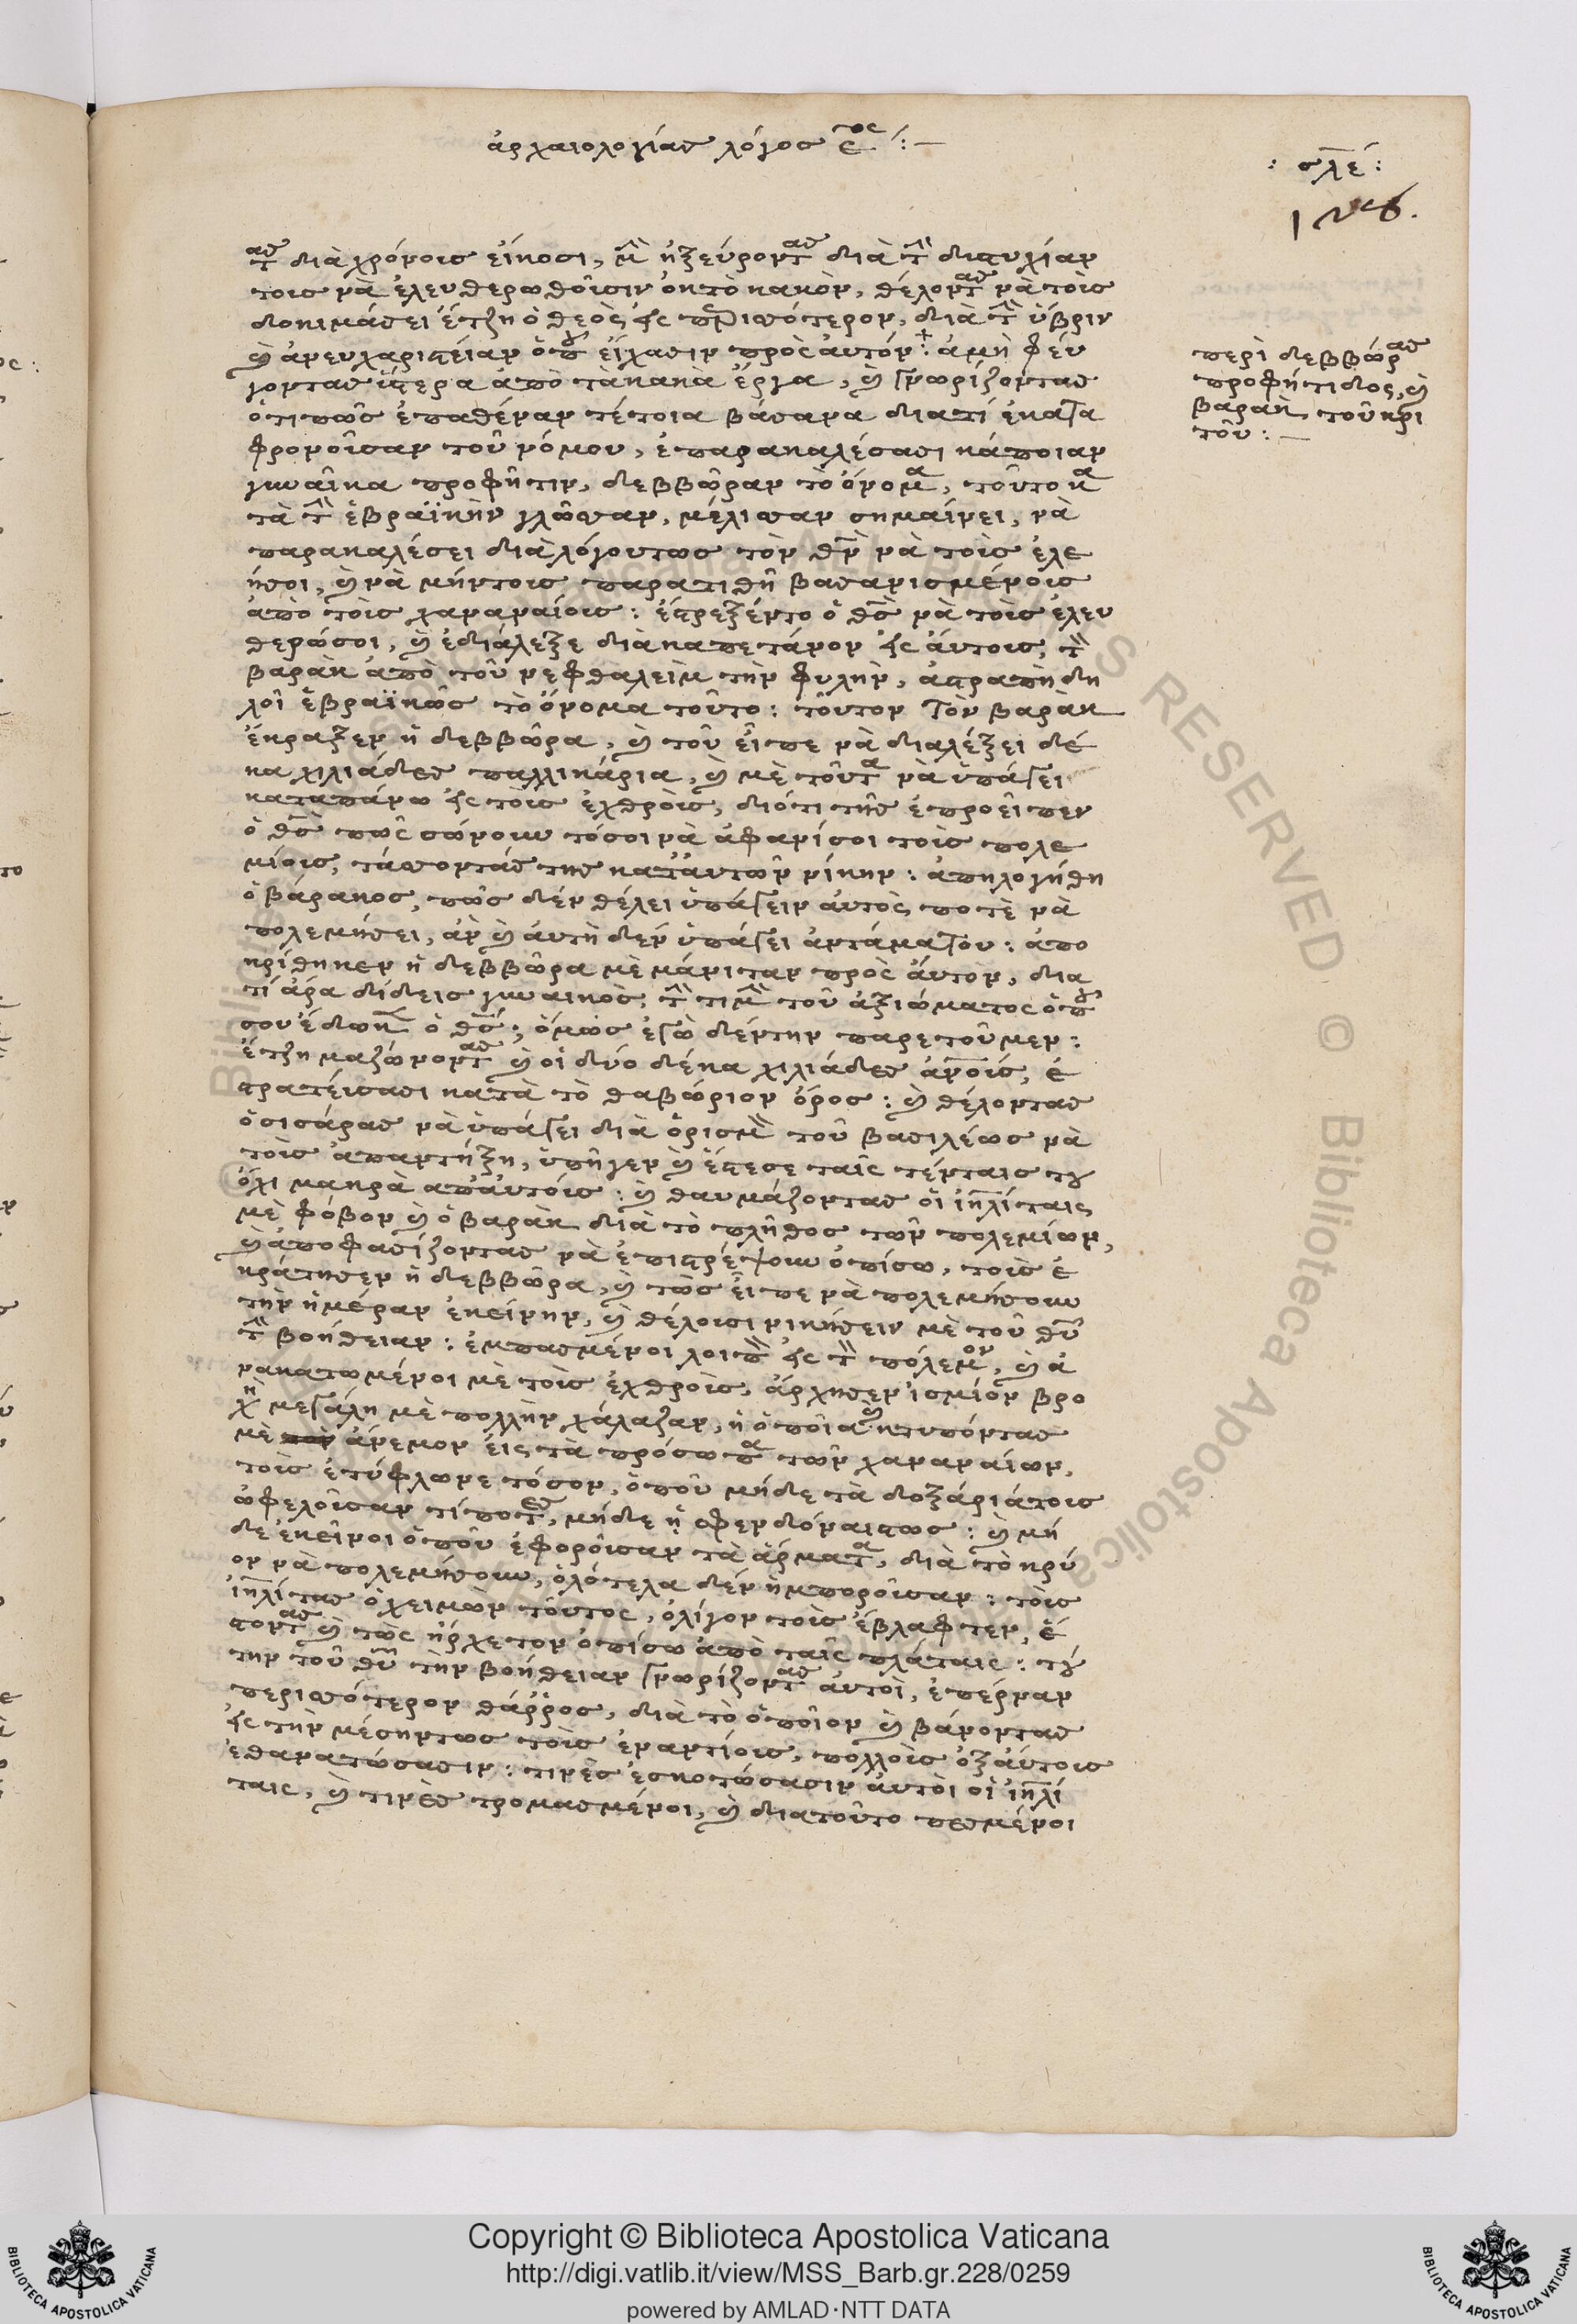 ἀρχαιολογίας λόγος ε^τος :—
: σλε :
τας διὰ χρόνοις εἴκοσι, μὴ ἠξεύροντας διὰ τὴν δυστυχίαν
τοις νὰ ἐλευθερωθοῖσιν ὀκτὸ κακὸν, θέλοντας νὰ τοὶς
δοκιμάσει ἔτζη ὁ θεὸς εἰς περισσότερον, διὰ τὴν ὕβριν
καὶ ἀνευχαριστείαν ὁποῦ εἴχασιν πρὸς αὐτόν : ἀμὴ φεύ
γοντας ὕστερα ἀπὸ τὰ κακὰ ἔργα, καὶ γνωρίζοντας
ὅτι πῶς ἐπαθέναν τέτοια βάσανα διατί ἐκατα
φρονοῖσαν τοῦ νόμου, ἐπαρακαλέσασι κάποιαν
γυναῖκα προφῆτιν, δεββῶραν τὸ ὄνομα, τοῦτο κα
τὰ τὴν ἑβραϊκὴν γλῶσσαν, μέλισσαν σημαίνει, νὰ
παρακαλέσει διὰ λόγουτως τὸν θν νὰ τοὶς ἐλε
ήσοι, καὶ νὰ μήντοις παρατιθῆ βασανισμένοις
ἀπὸ τοὶς χαναναίοις : ἐστρεξέντο ὁ θς νὰ τοὶς ἐλευ
θερώσοι, καὶ ἐδιάλεξε διὰ καπετάνον εἰς αὐτοις, τὸν
βαρὰκ ἀπὸ τοῦ νεφθαλεὶμ τὴν φυλὴν, ἀστραπὴ δη
λοῖ ἑβραϊκῶς τὸ ὄνομα τοῦτο : τοῦτον τὸν βαρὰκ
ἔκραξεν ἡ δεββῶρα, καὶ τοῦ εἶπε νὰ διαλέξει δέ
κα χιλιάδες παλλικάρια, καὶ μὲ τοῦτα νὰ ὑπάγει
καταπάνω εἰς τοὶς ἐχθροὶς, διότι τῆς ἐπροεῖπεν
ὁ θς πῶς σώνουν τόσοι νὰ ἀφανίσοι τοὶς πολε
μίοις, τάσσοντάς της κατ' αὐτῶν νίκην : ἀπηλογήθη
ὁ βάρακος, πῶς δὲν θέλει ὑπάγειν αὐτὸς ποτὲ νὰ
πολεμήσει, ἂν καὶ αὐτὴ δὲν ὑπάγει ἀντάματου : ἀπο
κρίθηκεν ἡ δεββῶρα μὲ μάνιταν πρὸς αὐτὸν, δια
τί ἄρα δίδεις γυναικὸς, τὴν τιμὴν τοῦ ἀξιώματος ὁποῦ
σου ἔδωκεν ὁ θς ; ὅμως ἐγὼ δέντην παρετοῦμεν :
ἔτζη μαζώνοντας καὶ οἱ δύο δέκα χιλιάδες ἀνοὶς, ἐ
στρατεύσασι κατὰ τὸ θαβώριον ὄρος : καὶ θέλοντας
ὁ σισάρας νὰ ὑπάγει διὰ ὁρισμὸν τοῦ βασιλέως νὰ
τοὶς ἀπαντήξη, ὑπῆγεν καὶ ἔστεσε ταῖς τένταις του
ὄχι μακρὰ ἀπ' αὐτόις : καὶ θαυμάζοντας οἱ ἰηλίταις
μὲ φόβον καὶ ὁ βαρὰκ διὰ τὸ πλῆθος τῶν πολεμίων,
καὶ ἀποφασίζοντας νὰ ἐπιστρέψουν ὀπίσω, τοὶς ἐ
κράτησεν ἡ δεββῶρα, καὶ τῶς εἶπε νὰ πολεμήσουν
τὴν ἡμέραν ἐκείνην, καὶ θέλοισι νικήσειν μὲ τοῦ θυ
τὴν βοήθειαν : ἐμπασμένοι λοιπὸν εἰς τὸν πόλεμον, καὶ ἀ
νακατωμένοι μὲ τοὶς ἐχθροὶς, ἄρχησεν ἰσμίον βρο
χὴ μεγάλη μὲ πολλὴν χάλαζαν, ἡ ὁποία κτυπόντας
μὲ ἄνεμον εἰς τὰ πρόσωπα τῶν χαναναίων,
τοὶς ἐτύφλωνε τόσον, ὁποῦ μήδε τὰ δοξάριάτοις
ὠφελοῖσαν τίποτες, μήδε ἡ σφενδόναιστως : καὶ μή
δε ἐκεῖνοι ὁποῦ ἐφοροῖσαν τὰ ἄρματα, διὰ τὸ κρύ
ον νὰ πολεμήσουν, ὁλότελα δὲν ἠμποροῖσαν : τοὶς
ἰηλίτας ὁ χειμὼν τοῦτος, ὀλίγον τοὶς ἔβλαφτεν, ἔ
στοντας καὶ τῶς ἤρχετον ὀπίσω ἀπὸ ταῖς πλάταις : τού
την τοῦ θυ τὴν βοήθειαν γνωρίζοντας αὐτοὶ, ἐπέρναν
περισσότερον θάρρος, διὰ τὸ ὁποῖον καὶ βάνοντας
εἰς τὴν μέσηντως τοὶς ἐναντίοις, πολλοὶς ὀξ αὐτοις
ἐθανατώσασιν : τινὲς ἐσκοτώσασιν αὐτοὶ οἱ ἰηλί
ταις, καὶ τινὲς τρομασμένοι, καὶ διατοῦτο πεσμένοι
περὶ δεββώρας
προφήτιδος, καὶ
βαρὰκ τοῦ κρι
τοῦ :—
Copyright © Biblioteca Apostolica Vaticana
http://digi.vatlib.it/view/MSS_Barb.gr.228/0259
powered by AMLAD·NTT DATA